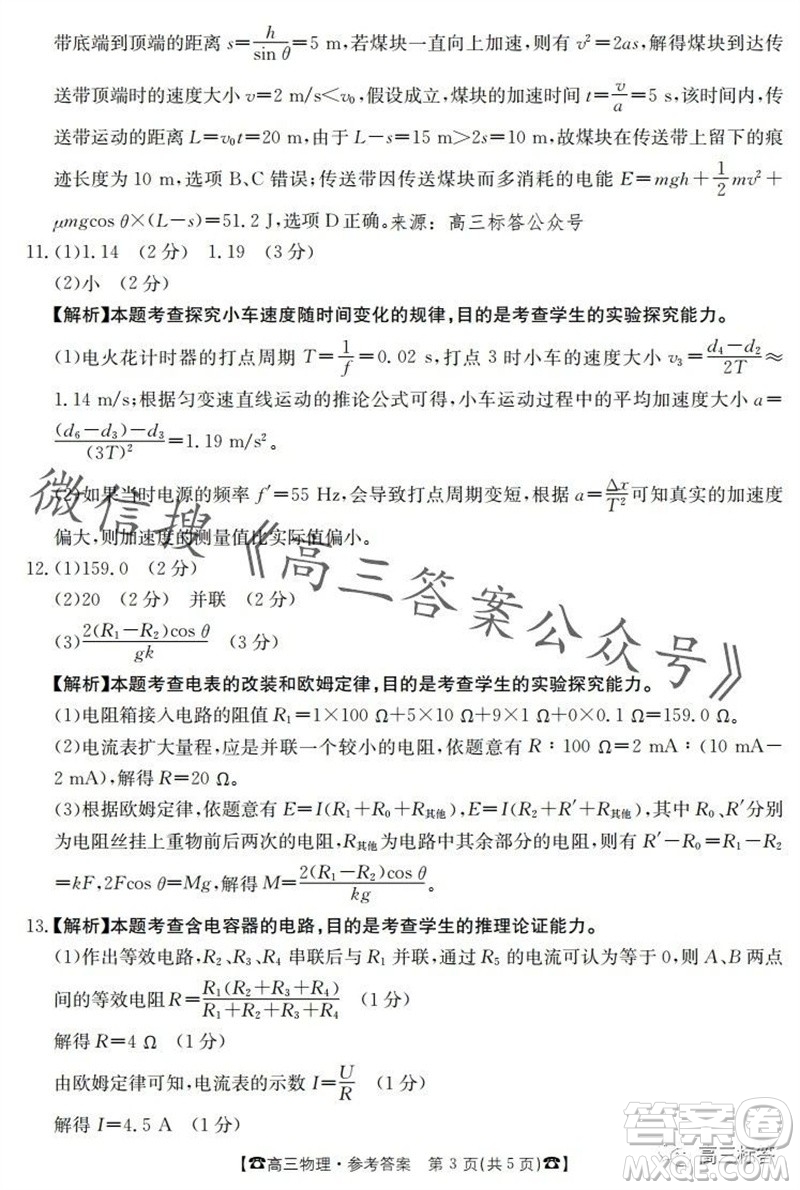 带底端到顶端的距离 s=h/sin θ=5 m，若煤块一直向上加速，则有 v²=2as，解得煤块到达传
送带顶端时的速度大小 v=2 m/s<v₀，假设成立，煤块的加速时间 t=v/a=5 s，该时间内，传
送带运动的距离 L=v₀t=20 m，由于 L-s=15 m>2s=10 m，故煤块在传送带上留下的痕
迹长度为 10 m，选项 B、C 错误；传送带因传送煤块而多消耗的电能 E=mgh+1/2mv²+
μmgcos θ×(L-s)=51.2 J，选项 D 正确。来源：高三标答公众号
11. (1)1.14 （2 分） 1.19 （3 分）
(2)小 （2 分）
【解析】本题考查探究小车速度随时间变化的规律，目的是考查学生的实验探究能力。
(1)电火花计时器的打点周期 T=1/f=0.02 s，打点 3 时小车的速度大小 v₃=(d₄-d₂)/2T≈
1.14 m/s；根据匀变速直线运动的推论公式可得，小车运动过程中的平均加速度大小 a=
((d₆-d₃)-d₃)/(3T)²=1.19 m/s²。
(2)如果当时电源的频率 f′=55 Hz，会导致打点周期变短，根据 a=Δx/T²可知真实的加速度
偏大，则加速度的测量值比实际值偏小。
12. (1)159.0 （2 分）
(2)20 （2 分） 并联 （2 分）
(3)2(R₁-R₂)cos θ/gk （3 分）
【解析】本题考查电表的改装和欧姆定律，目的是考查学生的实验探究能力。
(1)电阻箱接入电路的阻值 R₁=1×100 Ω+5×10 Ω+9×1 Ω+0×0.1 Ω=159.0 Ω。
(2)电流表扩大量程，应是并联一个较小的电阻，依题意有 R∶100 Ω=2 mA∶(10 mA-
2 mA)，解得 R=20 Ω。
(3)根据欧姆定律，依题意有 E=I(R₁+R₀+R其他)，E=I(R₂+R′+R其他)，其中 R₀、R′分别
为电阻丝挂上重物前后两次的电阻，R其他为电路中其余部分的电阻，则有 R′-R₀=R₁-R₂
=kF，2Fcos θ=Mg，解得 M=2(R₁-R₂)cos θ/kg。
13.【解析】本题考查含电容器的电路，目的是考查学生的推理论证能力。
(1)作出等效电路，R₂、R₃、R₄ 串联后与 R₁ 并联，通过 R₅ 的电流可认为等于 0，A、B 两点
间的等效电阻 R=R₁(R₂+R₃+R₄)/(R₁+R₂+R₃+R₄) （1 分）
解得 R=4 Ω （1 分）
由欧姆定律可知，电流表的示数 I=U/R （1 分）
解得 I=4.5 A （1 分）
【☎高三物理·参考答案 第 3 页(共 5 页)☎】
微信搜《高三答案公众号》
答案圈
高三标答
MXQE.COM